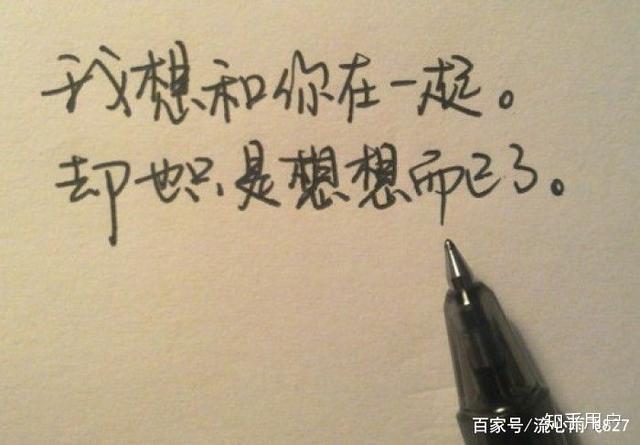 我想和你在一起。
却也只是想想而已了。
知乎用户
百家号/流心雨